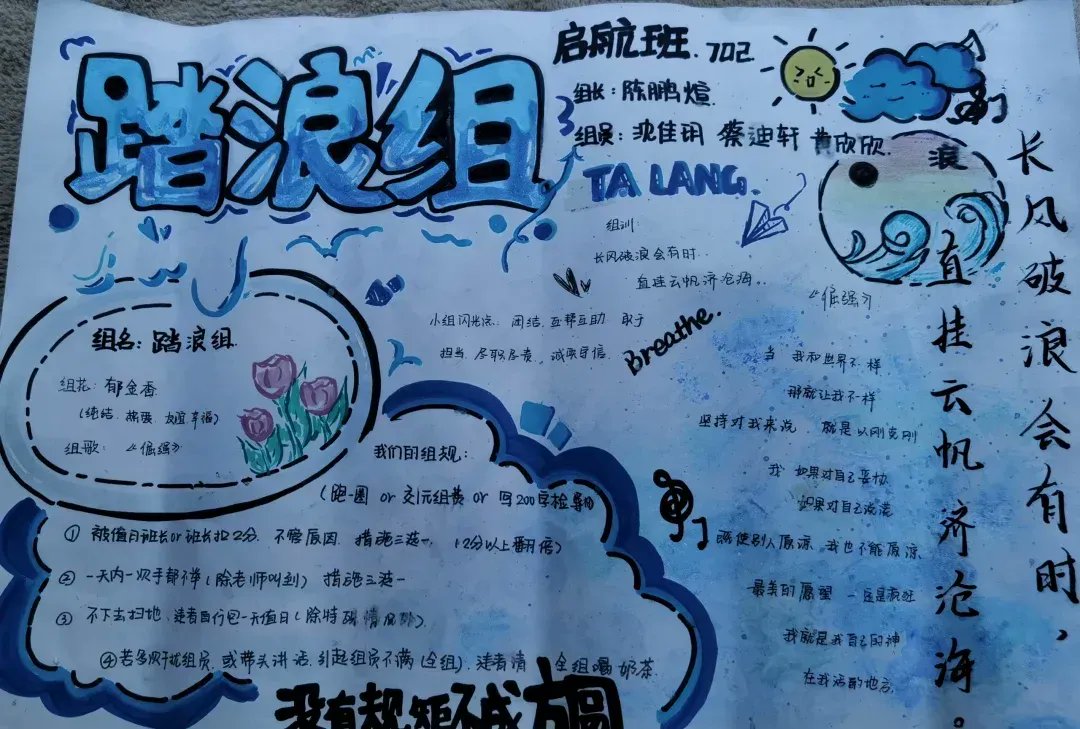 踏浪组
启航班.702
组长：陈鹏煊
组员：沈佳玥 蔡迪轩 黄欣欣.
TA LANG.
浪
组训
长风破浪会有时..
直挂云帆济沧海..
小组闪光点：团结.互帮互助.敢于
担当.尽职尽责.诚实守信.
Breathe.
组名：踏浪组.
组花：郁金香
(纯洁.热爱.友谊幸福)
组歌：《倔强》
我们的组规：
(跑一圈 or 交1元组费 or 写200字检导)
① 被值日班长or班长扣2分.不管原因.措施三选一.(2分以上翻倍)
② 一天内一次手都不举(除老师叫到) 措施三选一
③ 不下去扫地.违者自行包一天值日(除特殊情况外).
④若多次干扰组员.或带头讲话.引起组员不满(全组).违者请 全组喝奶茶.
没有规矩不成方圆
《倔强》
当 我和世界不一样
那就让我不一样
坚持对我来说 就是以刚克刚
我 如果对自己妥协
如果对自己说谎
既使别人原谅 我也不能原谅
最美的愿望 一定最疯狂
我就是我自己的神
在我活的地方
长风破浪会有时，
直挂云帆济沧海。